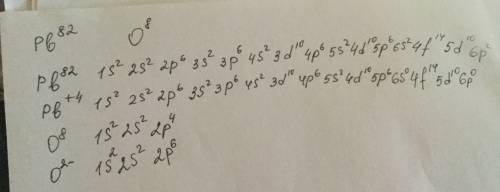 Pb⁸² O⁸
Pb⁸² 1s² 2s² 2p⁶ 3s² 3p⁶ 4s² 3d¹⁰ 4p⁶ 5s² 4d¹⁰ 5p⁶ 6s² 4f¹⁴ 5d¹⁰ 6p²
Pb⁺⁴ 1s² 2s² 2p⁶ 3s² 3p⁶ 4s² 3d¹⁰ 4p⁶ 5s² 4d¹⁰ 5p⁶ 6s⁰ 4f¹⁴ 5d¹⁰ 6p⁰
O⁸ 1s² 2s² 2p⁴
O²⁻ 1s² 2s² 2p⁶